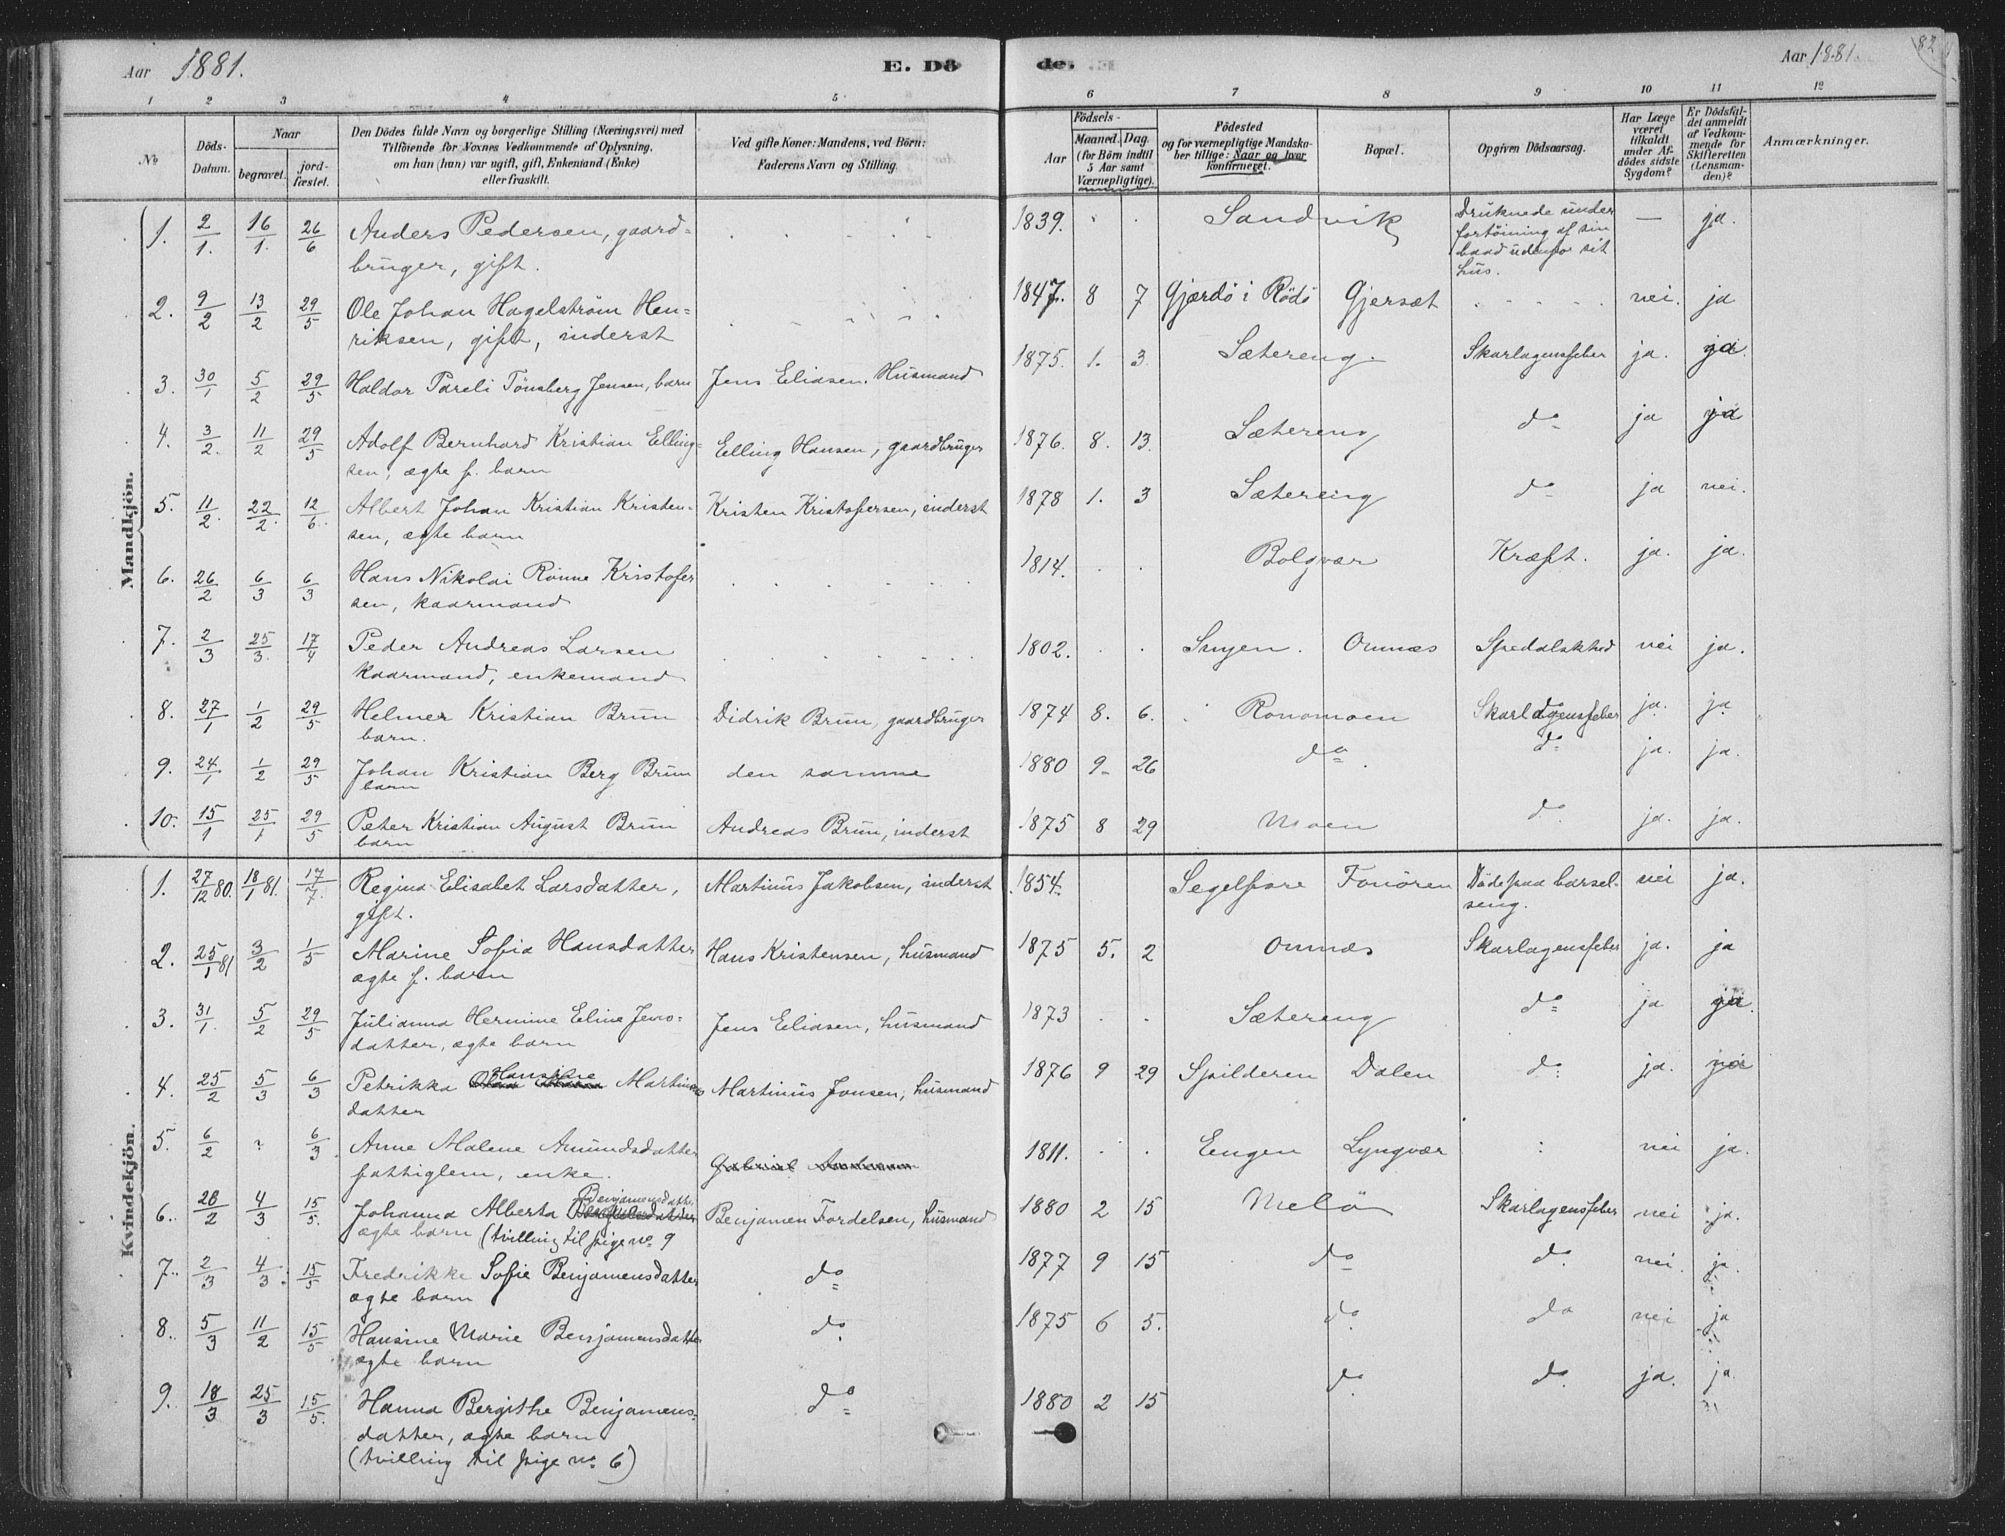 Aar 1881. E. Dö de. Aar 1881. 82
1 2 3 4 5 6 7 8 9 10 11 12
No
Döds-Datum.
Naar
begravet.
jord-fæstet.
Den Dödes fulde Navn og borgerlige Stilling (Næringsvei) med
Tilföiende for Voxnes Vedkommende af Oplysning,
om han (hun) var ugift, gift, Enkemand (Enke)
eller fraskilt.
Ved gifte Koner: Mandens, ved Börn:
Faderens Navn og Stilling.
Födsels-
Aar
Maaned. Dag.
(for Börn indtil
5 Aar samt
Værnepligtige).
Födested
og for værnepligtige Mandska-
ber tillige: Naar og hvor
konfirmeret.
Bopæl.
Opgiven Dödsaarsag.
Har Læge
været
tilkaldt
under Af-
dödes sidste
Sygdom?
Er Dödsfal-
det anmeldt
af Vedkom-
mende for
Skifteretten
(Lensman-
den)?
Anmærkninger.
Mandkjön.
1. 2/1. 16/1. 26/6 Anders Pedersen, gaard- 1839. Sandvik Druknede under — ja.
bruger, gift. fortöining af sin
baad udenfor sit
hus.
2. 9/2 13/2 29/5 Ole Johan Hagelstrøm Hen- 1847. 8 7 Gjærdö i Rödö Gjersæt nei. ja
riksen, gift, inderst
3. 30/1 5/2 29/5 Haldor Pareli Tönsberg Jensen, barn Jens Eliasen. Husmand 1875. 1. 3 Sætereng. Skarlagensfeber ja. ja.
4. 3/2. 11/2 29/5 Adolf Bernhard Kristian Elling- Elling Hansen, gaardbruger 1876. 8. 13. Sætereng do ja ja
sen, ægte f. barn
5. 11/2. 22/2. 12/6. Albert Johan Kristian Kristen- Kristen Kristofersen, inderst 1878 1. 3 Sætereng do ja nei.
sen, ægte barn
6. 26/2 6/3 6/3 Hans Nikolai Rönne Kristofer 1814. Bolgvær Kræft. ja. ja.
sen, kaarmand
7. 2/3 25/3. 17/4 Peder Andreas Larsen 1802. Snyen. Onnæs Spedalskhed nei ja.
kaarmand, enkemand
8. 27/1 1/2 29/5 Helmer Kristian Brun Didrik Brun, gaardbruger 1874 8. 6. Ronomoen Skarlagensfeber ja. ja
barn.
9. 24/1 1/2 29/5 Johan Kristian Berg Brun den samme 1880 9 26 do do ja. ja.
barn
10. 15/1 25/1 29/5 Peter Kristian August Brun Andreas Brun, inderst 1875 8 29 Moen do ja. ja.
barn
Kvindekjön.
1. 27/12 80. 18/1 81. 17/7. Regina Elisabet Larsdatter, Martinus Jakobsen, inderst 1854. Segelfore Fonören Döde paa barsel- nei ja.
gift. seng.
2. 25/1 81 3/2 1/5 Marine Sofia Hansdatter Hans Kristensen, husmand 1875 5. 2 Onnæs Skarlagensfeber ja. ja
ægte f. barn
3. 31/1. 5/2 29/5 Julianna Hermine Eline Jens- Jens Eliasen, husmand 1873 Sætereng do ja ja.
datter, ægte barn
4. 25/2 5/3 6/3 Petrikka Hansine Martinus Martinus Jonsen, husmand 1876 9 29 Spilderen Dalen do ja.
datter
5. 6/2 ? 6/3 Anne Malene Amundsdatter Gabriel Andersen 1811. Eengen Lyngvær nei ja.
fattiglem, enke.
6. 28/2 4/3 15/5. Johanna Alberta Benjamensdatter Benjamen Fordelsen, husmand 1880 2 15 Melö Skarlagensfeber nei ja.
ægte barn (tvilling til pige no. 9
7. 2/3 4/3. 15/5 Fredrikke Sofie Benjamensdatter do 1877 9 15 do do. nei. ja.
ægte barn
8. 5/3 11/2 15/5 Hansine Marie Benjamensdatter do. 1875 6 5. do. do nei ja
ægte barn
9. 18/3 25/3 15/5. Hanna Bergithe Benjamens- do 1880 2 15 do. do. ja. ja.
datter, ægte barn
(tvilling til pige no. 6)